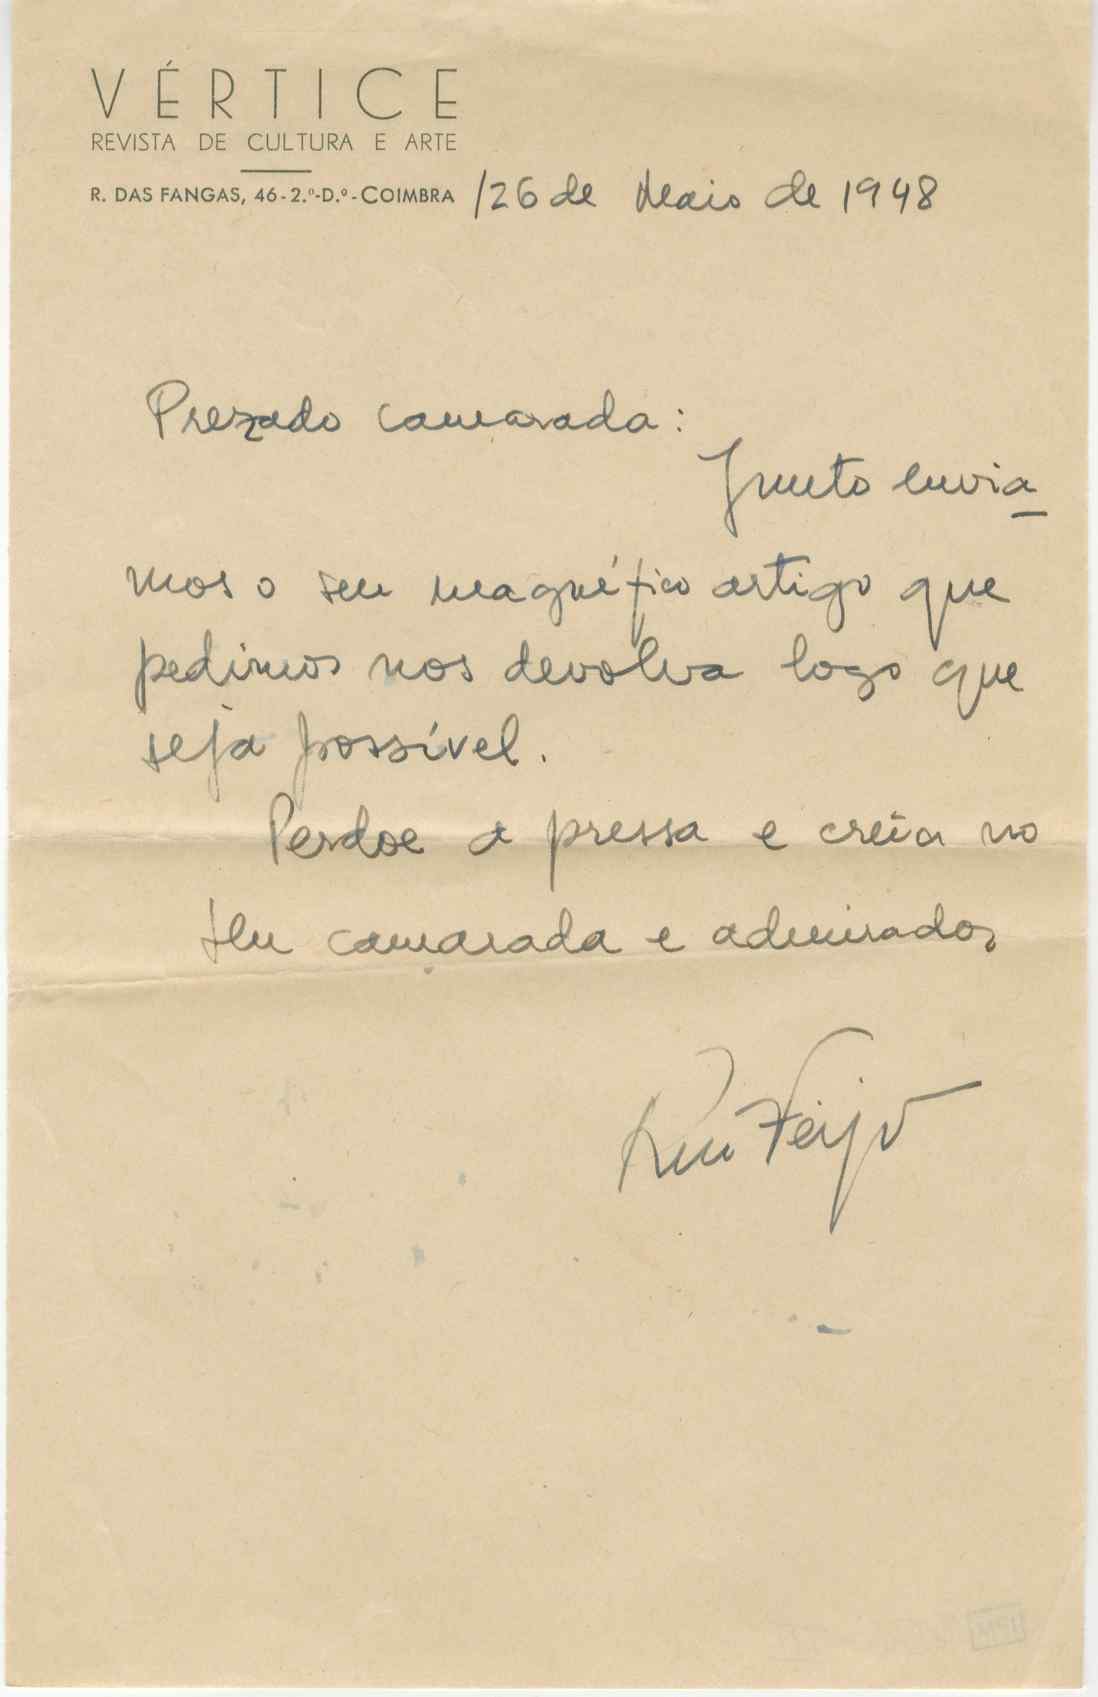 VÉRTICE
REVISTA DE CULTURA E ARTE
R. DAS FANGAS, 46-2.º-D.º-COIMBRA /26 de Maio de 1948
Prezado camarada:
Junto envia
mos o seu magnífico artigo que
pedimos nos devolva logo que
seja possível.
Perdoe a pressa e creia no
seu camarada e admirador
Rui Feijó